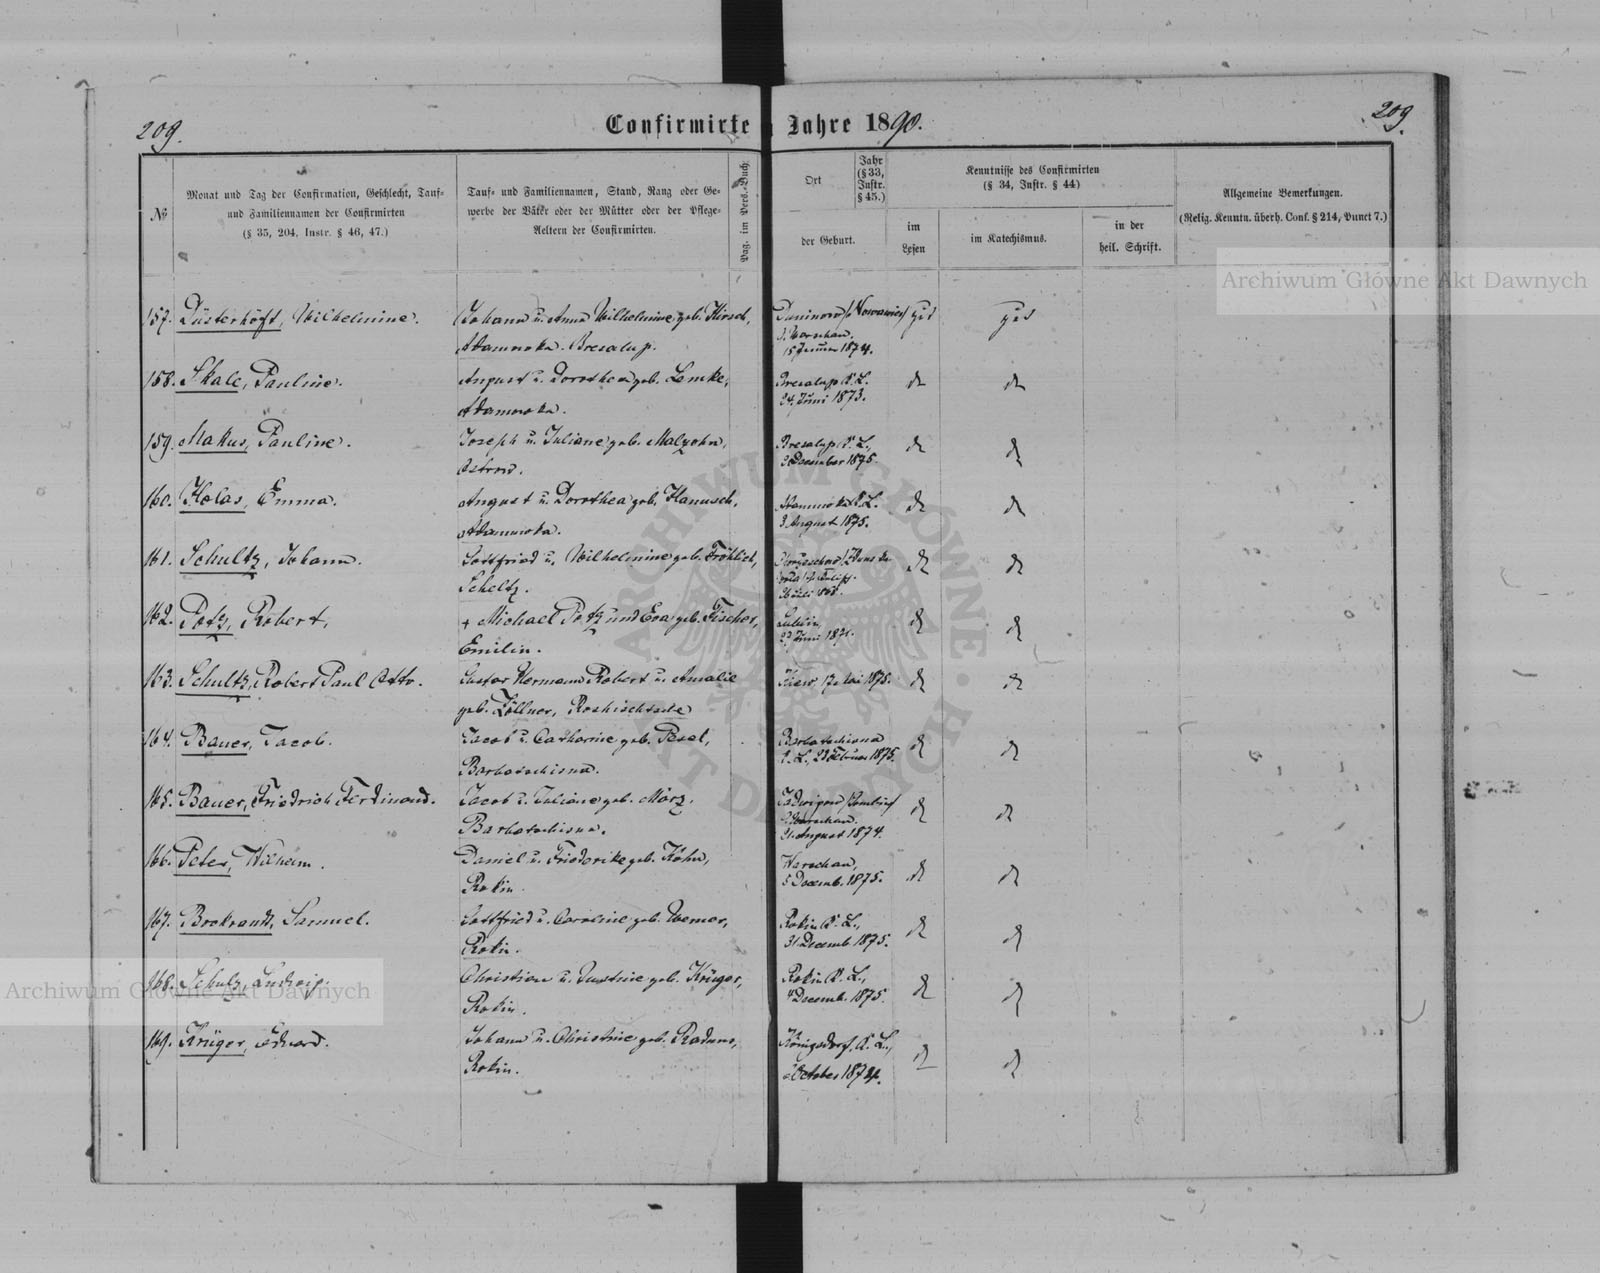 209.
Confirmirte
Jahre 1890.
209.
№
Monat und Tag der Confirmation, Geschlecht, Tauf=
und Familiennamen der Confirmirten
(§ 35, 204, Instr. § 46, 47.)
Tauf= und Familiennamen, Stand, Rang oder Ge=
werbe der Väter oder der Mütter oder der Pflege=
Aeltern der Confirmirten.
Pag. im Pers.=Buch.
Ort
Jahr
(§ 33,
Instr.
§ 45.)
der Geburt.
Kenntnisse des Confirmirten
(§ 34, Instr. § 44)
im
Lesen
im Katechismus.
in der
heil. Schrift.
Allgemeine Bemerkungen.
(Relig. Kenntn. überh. Conf. § 214, Punct 7.)
157. Düsterhöft, Wilhelmine.
Johann u. Anna Wilhelmine geb. Hirsch,
Adamowka. Bresalup.
15 Januar 1874.
gut
gut
158. Skale, Pauline.
August u. Dorothea geb. Lemke,
Adamowka.
Bresalup K. L.
24. Juni 1873.
do
do
159. Makus, Pauline.
Joseph u. Juliane geb. Malzohn,
Ostrow.
Bresalup K. L.,
December 1875.
do
do
160. Holas, Emma.
August u. Dorothea geb. Hanusch,
Adamowka.
Adamowka K. L.
3 August 1875.
do
do
161. Schultz, Johann.
Gottfried u. Wilhelmine geb. Fröhlich,
Scheltz.
do
do
162. Potz, Robert.
+ Michael Potz und Eva geb. Fischer,
Emilin.
do
do
163. Schultz, Robert Paul Otto.
Gustav Hermann Robert u. Amalie
geb. Zöllner, Roshischtsche
Kiew, 17 Mai 1875.
do
do
164. Bauer, Jacob.
Jacob u. Catharine geb. Pesel,
Barbotschisna.
Barbotschisna
K. L., 23 Februar 1875.
do
do
165. Bauer, Friedrich Ferdinand.
Jacob u. Juliane geb. März,
Barbotschisna.
21. August 1874.
do
do
166. Peter, Wilhelm.
Daniel u. Friederike geb. Köhn,
Rokin.
Warschau,
5 Decemb. 1875.
do
do
167. Brokrandt, Samuel.
Gottfried u. Caroline geb. Wemer,
Rokin.
Rokin K. L.,
31 Decemb. 1875.
do
do
168. Schulz, Ludwig.
Christian u. Justine geb. Krüger,
Rokin.
Rokin K. L.,
4 Decemb. 1875.
do
do
169. Krüger, Eduard.
Johann u. Christine geb. Radunz,
Rokin.
Königsdorf, K. L.,
October 1874.
do
do
Archiwum Główne Akt Dawnych
Archiwum Główne Akt Dawnych
ARCHIWUM GŁÓWNE AKT DAWNYCH